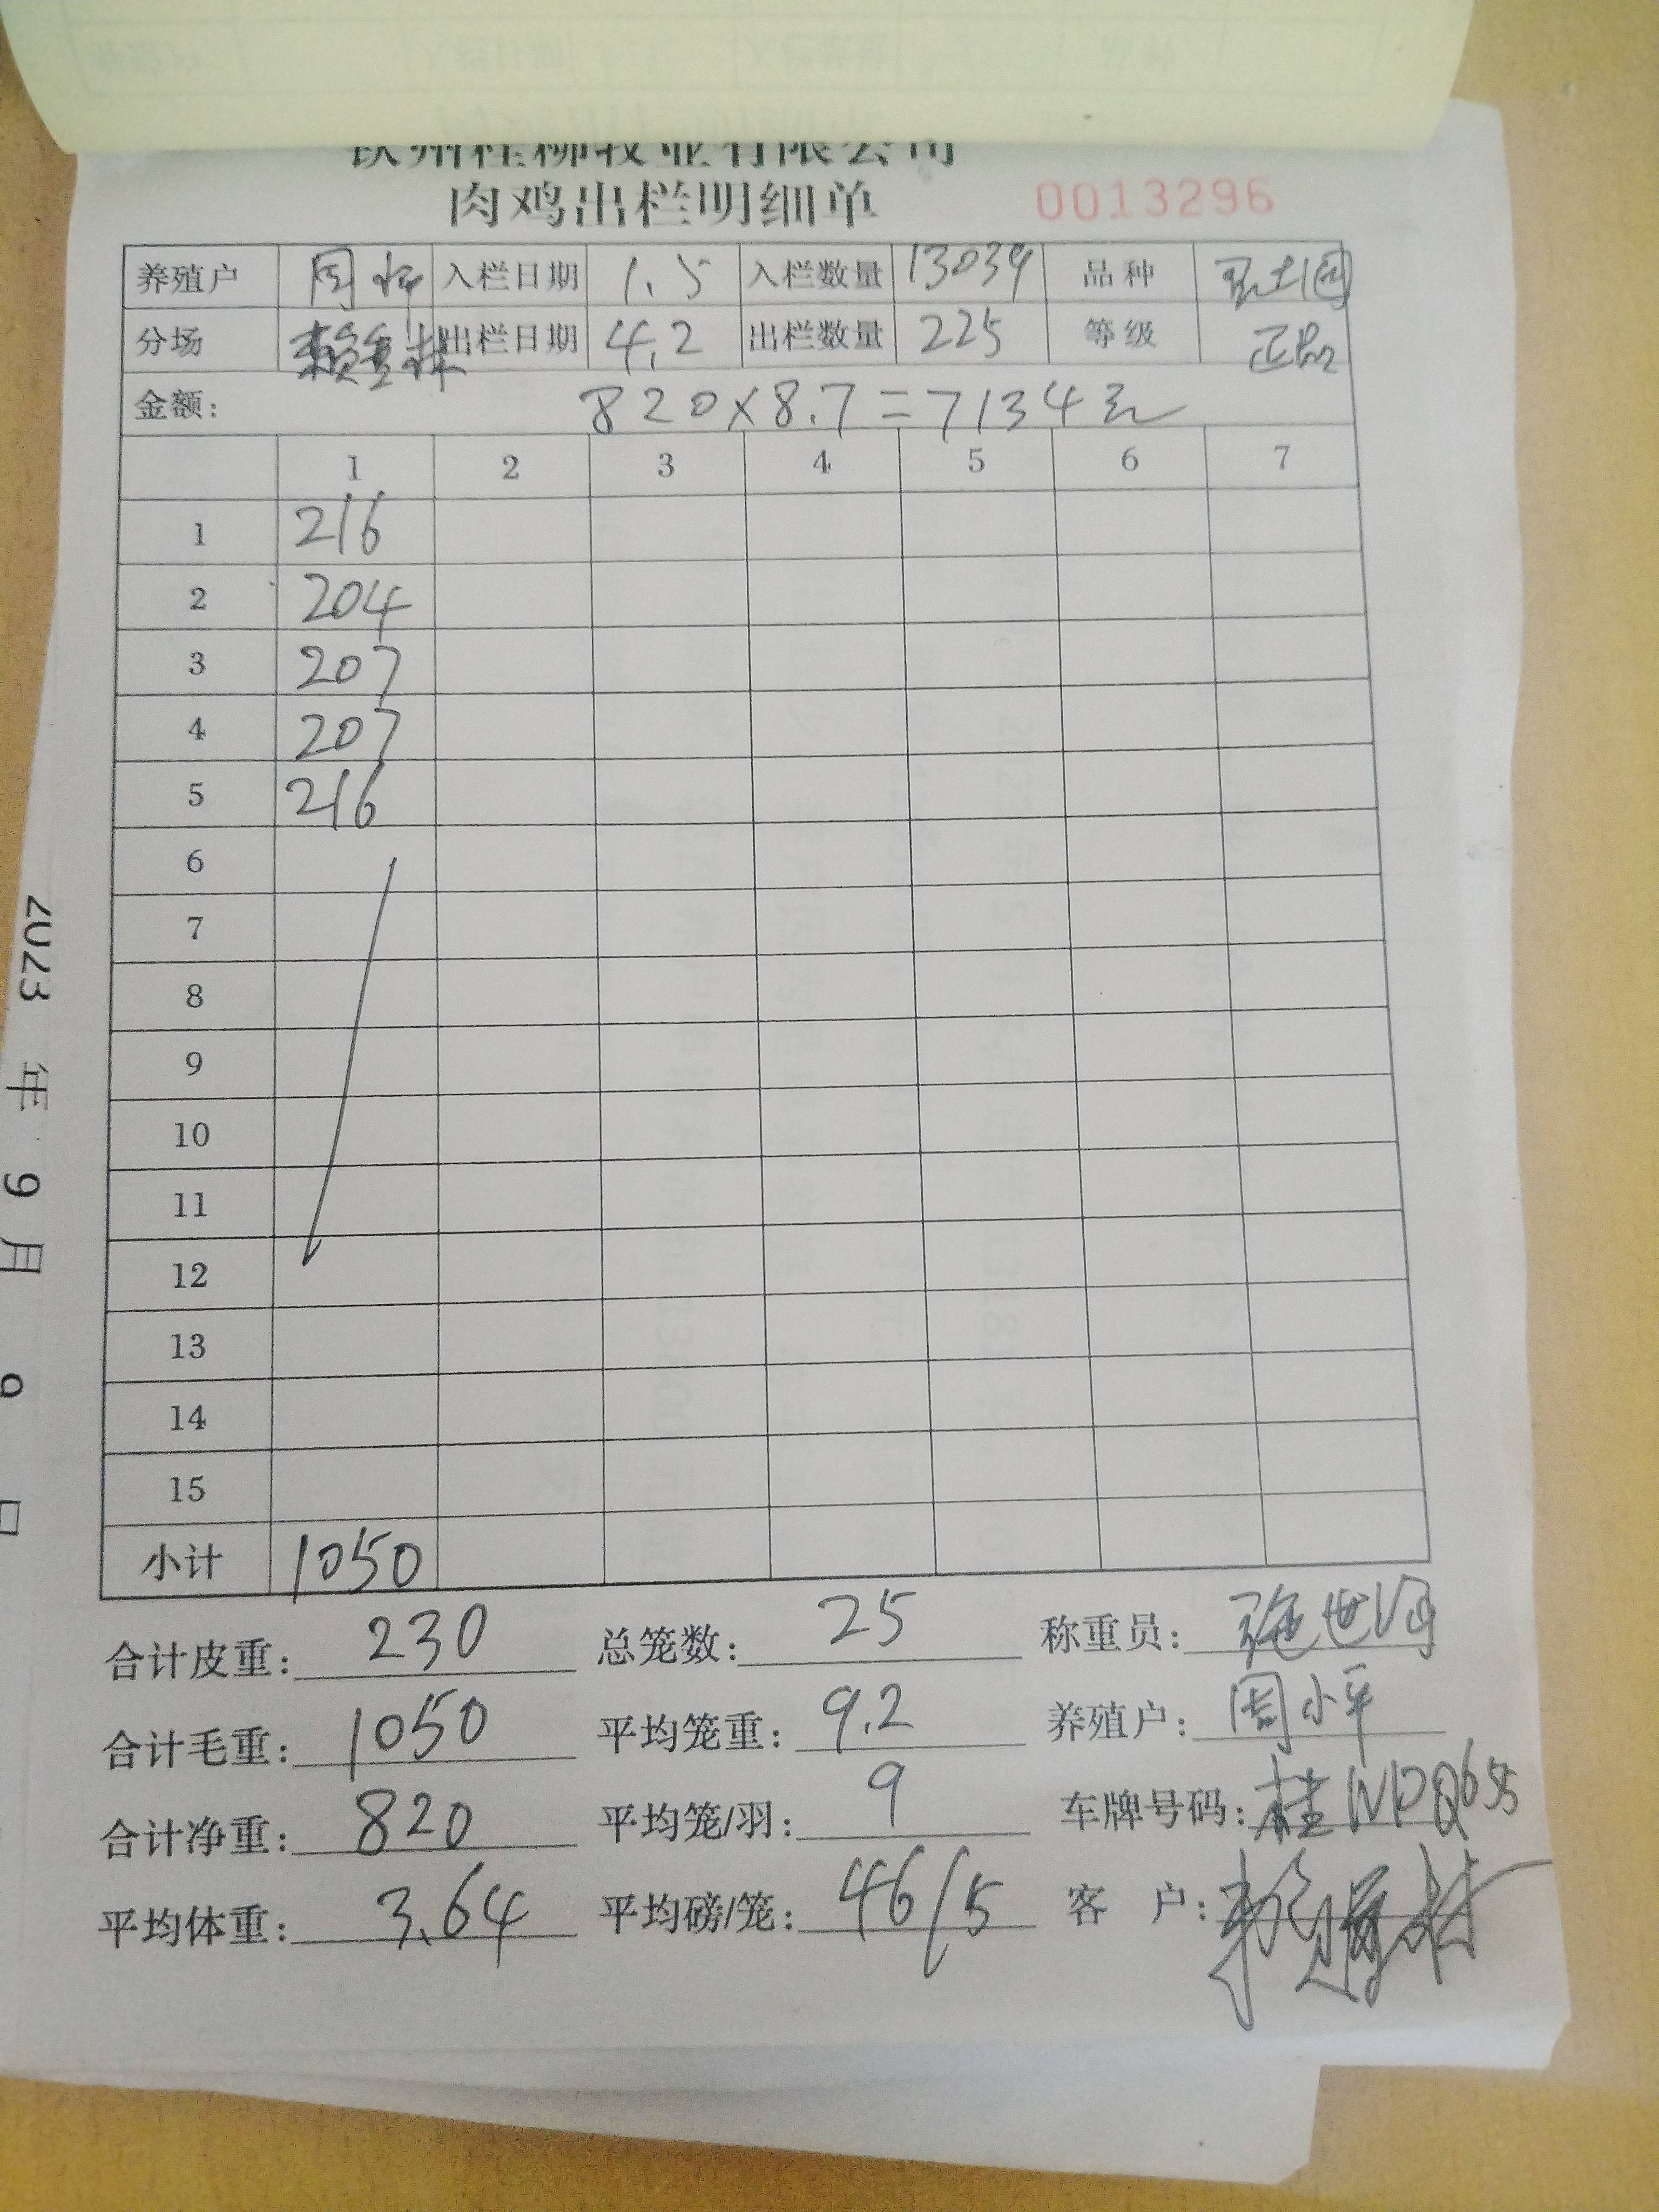 钦州桂柳牧业有限公司
肉鸡出栏明细单 0013296
养殖户 周小平 入栏日期 1.5 入栏数量 13039 品种
分场 出栏日期 4.2 出栏数量 225 等级 正品
金额: 820×8.7=7134元
1 2 3 4 5 6 7
1 216
2 204
3 207
4 207
5 216
6
7
8
9
10
11
12
13
14
15
小计 1050
合计皮重: 230 总笼数: 25 称重员:
合计毛重: 1050 平均笼重: 9.2 养殖户: 周小平
合计净重: 820 平均笼/羽: 9 车牌号码: 桂
平均体重: 3.64 平均磅/笼: 46/5 客 户:
2023 年 9 月 9 日